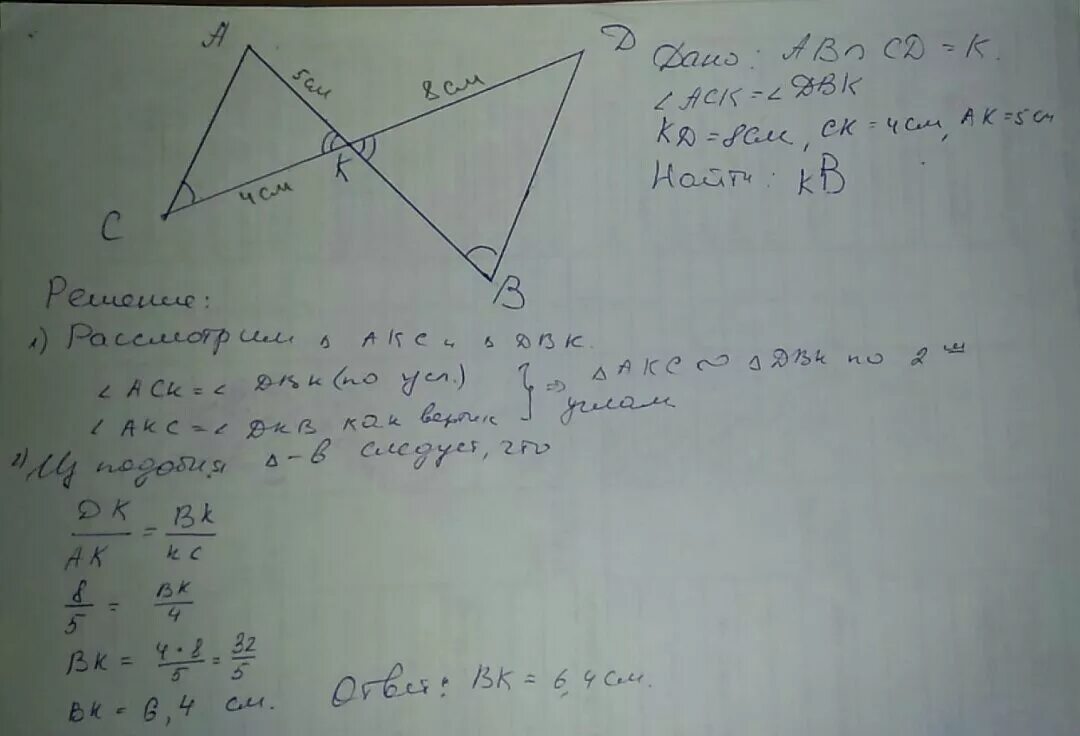 A
D
5см
8см
K
4см
C
B
Дано: AB∩CD=K.
∠ACK=∠DBK
KD=8см, CK=4см, AK=5см
Найти: KB
Решение:
1) Рассмотрим △ AKC и △ DBK.
∠ACK=∠DBK (по усл.)
∠AKC=∠DKB как вертик
} ⇒ △AKC ~ △DBK по 2ум
углам
2) Из подобия △-в следует, что
DK/AK = BK/KC
8/5 = BK/4
BK = 4·8/5 = 32/5
BK = 6,4 см.
Ответ: BK = 6,4см.